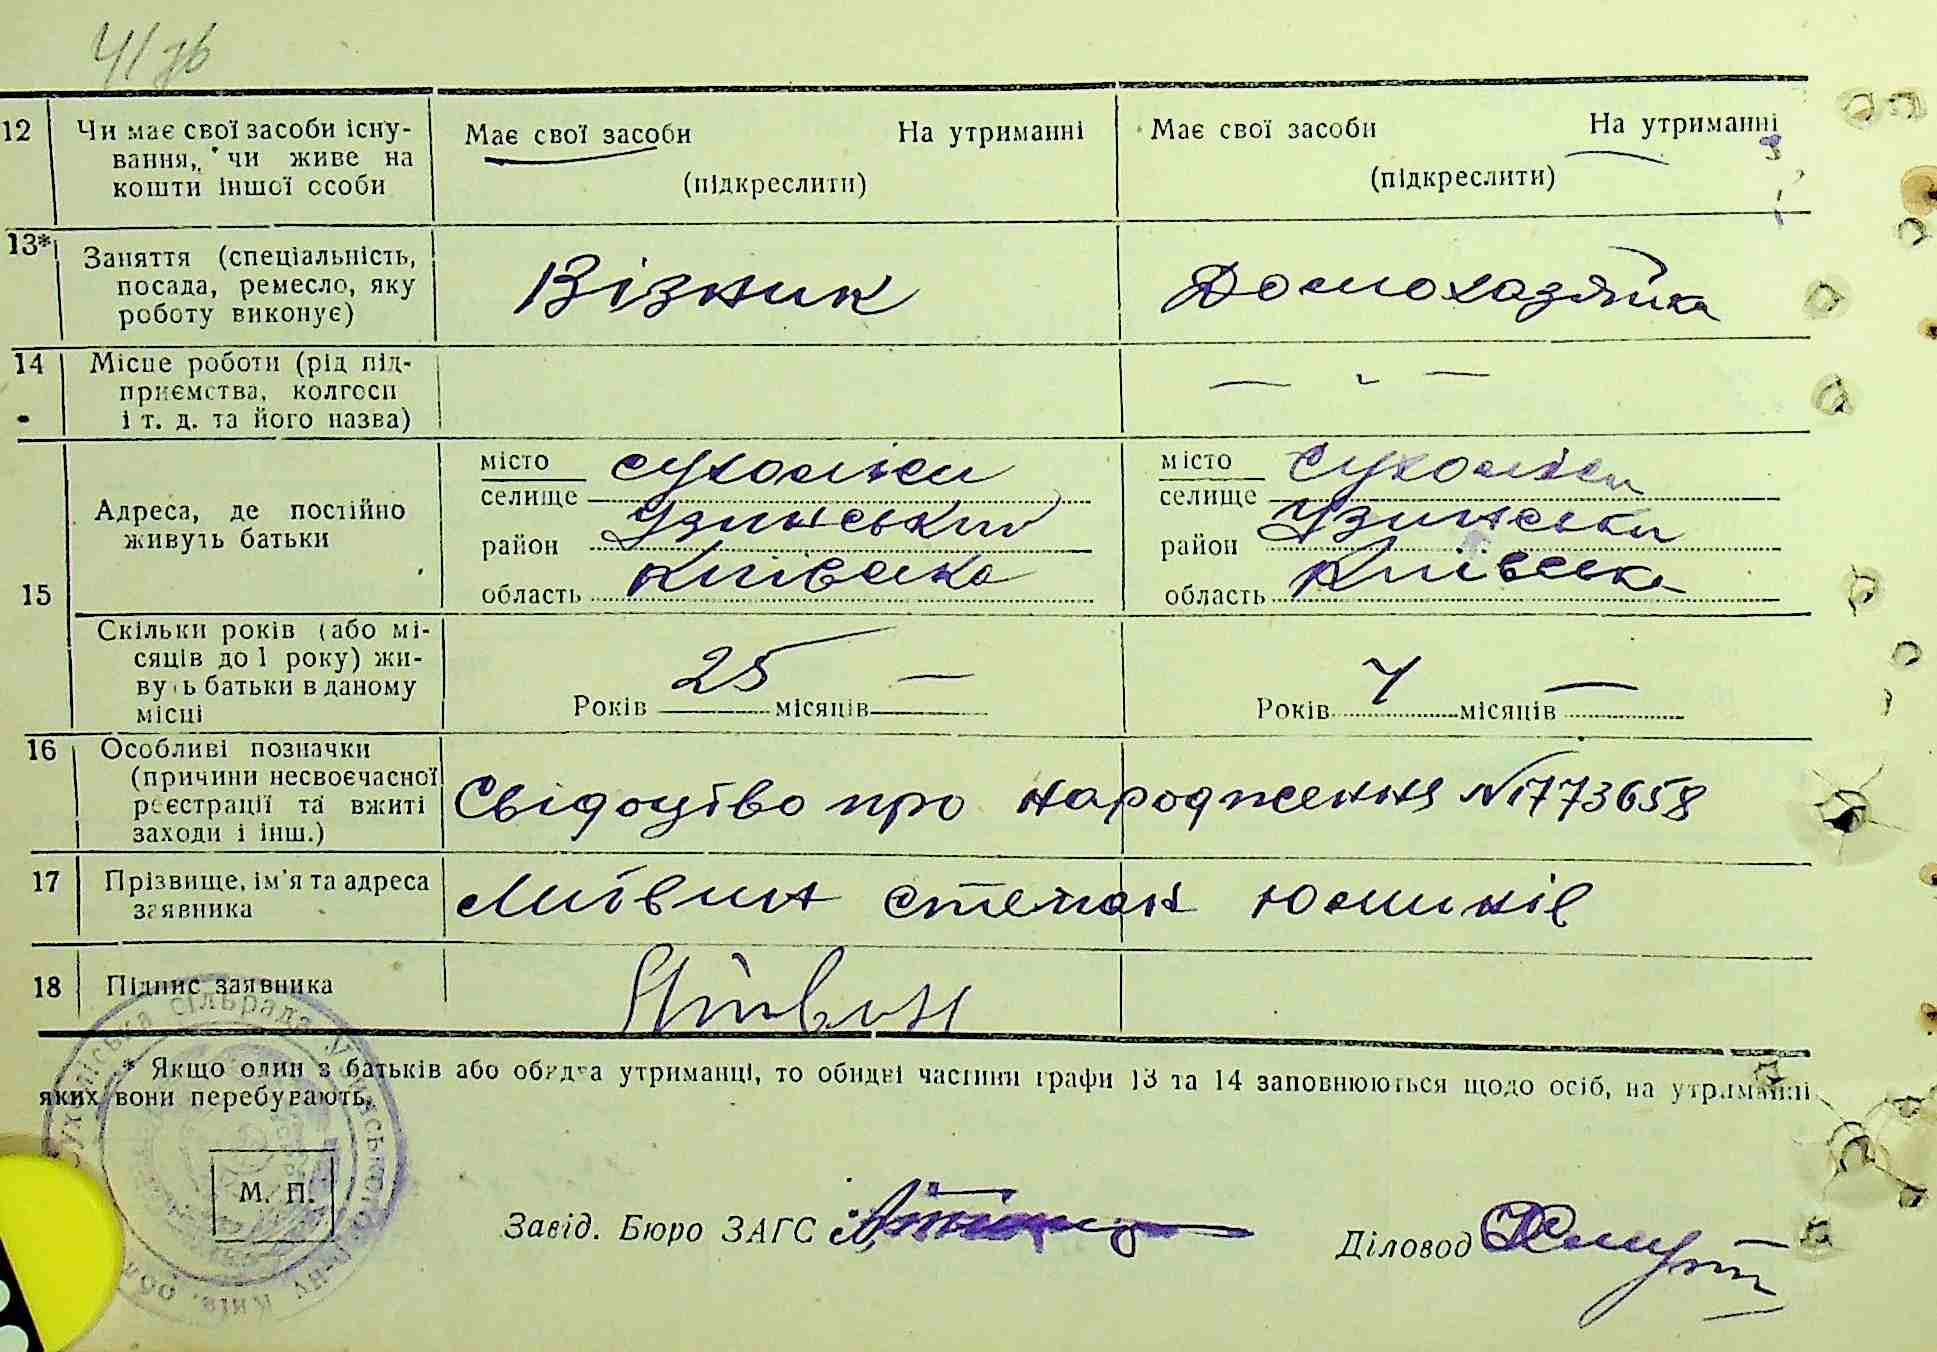 12 Чи має свої засоби існу-
вання, чи живе на
кошти іншої особи
Має свої засоби На утриманні
(підкреслити)
Має свої засоби На утриманні
(підкреслити)
13* Заняття (спеціальність,
посада, ремесло, яку
роботу виконує)
Візник
Домохазяйка
14 Місце роботи (рід під-
приємства, колгосп
і т. д. та його назва)
— " —
15
Адреса, де постійно
живуть батьки
місто
селище Сухоліси
район Узинський
область Київська
місто
селище Сухоліси
район Узинськи
область Київська
Скільки років (або мі-
сяців до 1 року) жи-
вуть батьки в даному
місці
Років 25 місяців —
Років 4 місяців —
16 Особливі позначки
(причини несвоєчасної
реєстрації та вжиті
заходи і інш.)
Свідоцтво про народження № 773658
17 Прізвище, ім'я та адреса
заявника
Литвин Степан
18 Підпис заявника
Литвин
* Якщо один з батьків або обидва утриманці, то обидві частини графи 13 та 14 заповнюються щодо осіб, на утриманні
яких вони перебувають.
сільрада Узинського р-ну Київ. обл.
М. П.
Завід. Бюро ЗАГС
Діловод